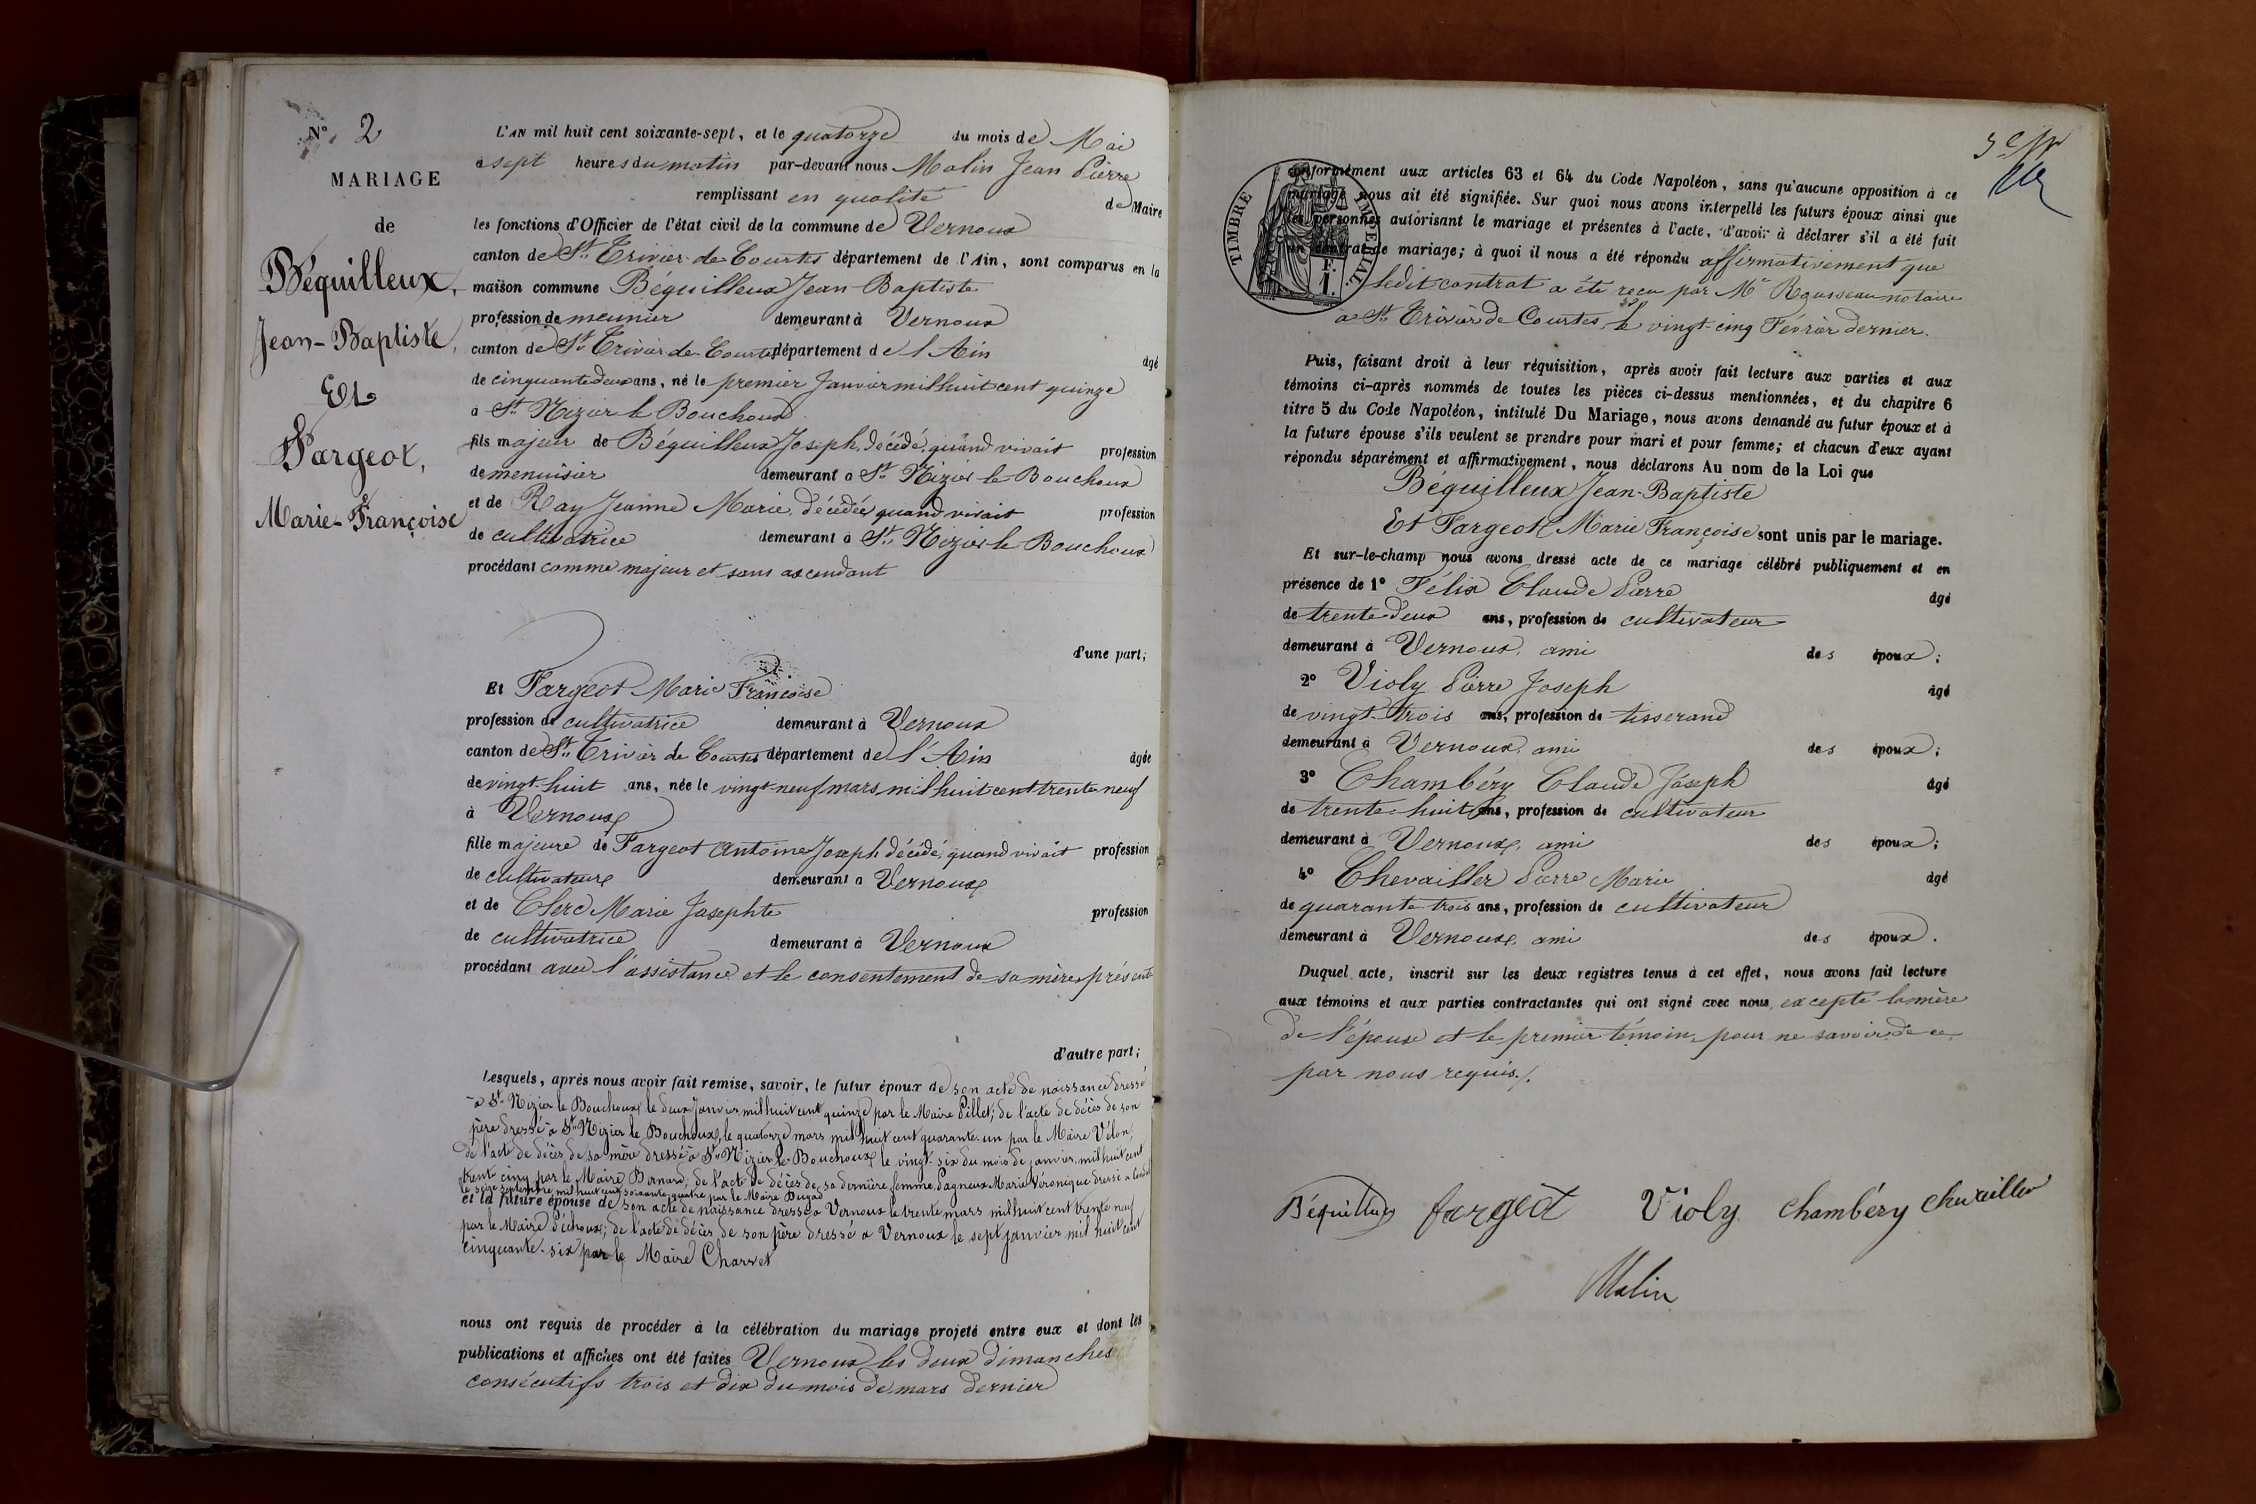 N° 2
MARIAGE
de
Béquilleux,
Jean-Baptiste,
Et
Fargeot,
Marie-Françoise
L'AN mil huit cent soixante-sept, et le quatorze du mois de Mai
à sept heures du matin par-devant nous Malin Jean Pierre
remplissant en qualité de Maire
les fonctions d'Officier de l'état civil de la commune de Vernoux
canton de St. Trivier-de-Courtes département de l'Ain, sont comparus en la
maison commune Béquilleux Jean-Baptiste
profession de meunier demeurant à Vernoux
canton de St. Trivier-de-Courtes département de l'Ain âgé
de cinquante deux ans, né le premier Janvier mil huit cent quinze
à St. Nizier le Bouchoux
fils majeur de Béquilleux Joseph, décédé, quand vivait profession
de menuisier demeurant à St. Nizier le Bouchoux
et de Ray Jeanne Marie, décédée quand vivait profession
de cultivatrice demeurant à St. Nizier le Bouchoux
procédant comme majeur et sans ascendant
d'une part;
Et Fargeot Marie Françoise
profession de cultivatrice demeurant à Vernoux
canton de St. Trivier de Courtes département de l'Ain âgée
de vingt-huit ans, née le vingt-neuf mars mil huit cent trente neuf
à Vernoux
fille majeure de Fargeot Antoine Joseph décédé, quand vivait profession
de cultivateur demeurant à Vernoux
et de Clerc Marie Josephte profession
de cultivatrice demeurant à Vernoux
procédant avec l'assistance et le consentement de sa mère présente
d'autre part;
Lesquels, après nous avoir fait remise, savoir, le futur époux de son acte de naissance dressé
à St. Nizier le Bouchoux le deux Janvier mil huit cent quinze par le Maire Pillet; de l'acte de décès de son
père dressé à St. Nizier le Bouchoux, le quatorze mars mil huit cent quarante-un par le Maire Vélon;
de l'acte de décès de sa mère dressé à St. Nizier le Bouchoux le vingt-six du mois de janvier mil huit cent
trente cinq par le Maire Bernard; de l'acte de décès de sa dernière femme Pagneux Marie Véronique dressé à
le seize septembre mil huit cent soixante quatre par le Maire
et la future épouse de son acte de naissance dressé à Vernoux le trente mars mil huit cent trente neuf
par le Maire Péchoux; de l'acte de décès de son père dressé à Vernoux le sept janvier mil huit cent
cinquante-six par le Maire Charvet
nous ont requis de procéder à la célébration du mariage projeté entre eux et dont les
publications et affiches ont été faites Vernoux les deux dimanches
consécutifs trois et dix du mois de mars dernier
TIMBRE IMPÉRIAL
F.
1
conformément aux articles 63 et 64 du Code Napoléon, sans qu'aucune opposition à ce
mariage nous ait été signifiée. Sur quoi nous avons interpellé les futurs époux ainsi que
les personnes autorisant le mariage et présentes à l'acte, d'avoir à déclarer s'il a été fait
un contrat de mariage; à quoi il nous a été répondu affirmativement que
ledit contrat a été reçu par Me Rousseau notaire
à St. Trivier de Courtes, le vingt-cinq Février dernier.
Puis, faisant droit à leur réquisition, après avoir fait lecture aux parties et aux
témoins ci-après nommés de toutes les pièces ci-dessus mentionnées, et du chapitre 6
titre 5 du Code Napoléon, intitulé Du Mariage, nous avons demandé au futur époux et à
la future épouse s'ils veulent se prendre pour mari et pour femme; et chacun d'eux ayant
répondu séparément et affirmativement, nous déclarons Au nom de la Loi que
Béquilleux Jean-Baptiste
Et Fargeot Marie Françoise sont unis par le mariage.
Et sur-le-champ nous avons dressé acte de ce mariage célébré publiquement et en
présence de 1° Félix Claude Pierre âgé
de trente deux ans, profession de cultivateur
demeurant à Vernoux, ami des époux;
2° Violy Pierre Joseph âgé
de vingt-trois ans, profession de tisserand
demeurant à Vernoux, ami des époux;
3° Chambéry Claude Joseph âgé
de trente-huit ans, profession de cultivateur
demeurant à Vernoux, ami des époux;
4° Chevailler Pierre Marie âgé
de quarante-trois ans, profession de cultivateur
demeurant à Vernoux, ami des époux.
Duquel acte, inscrit sur les deux registres tenus à cet effet, nous avons fait lecture
aux témoins et aux parties contractantes qui ont signé avec nous, excepté la mère
de l'épouse et le premier témoin, pour ne savoir, de ce
par nous requis./.
Béquilleux fargeot Violy chambéry chevailler
Malin